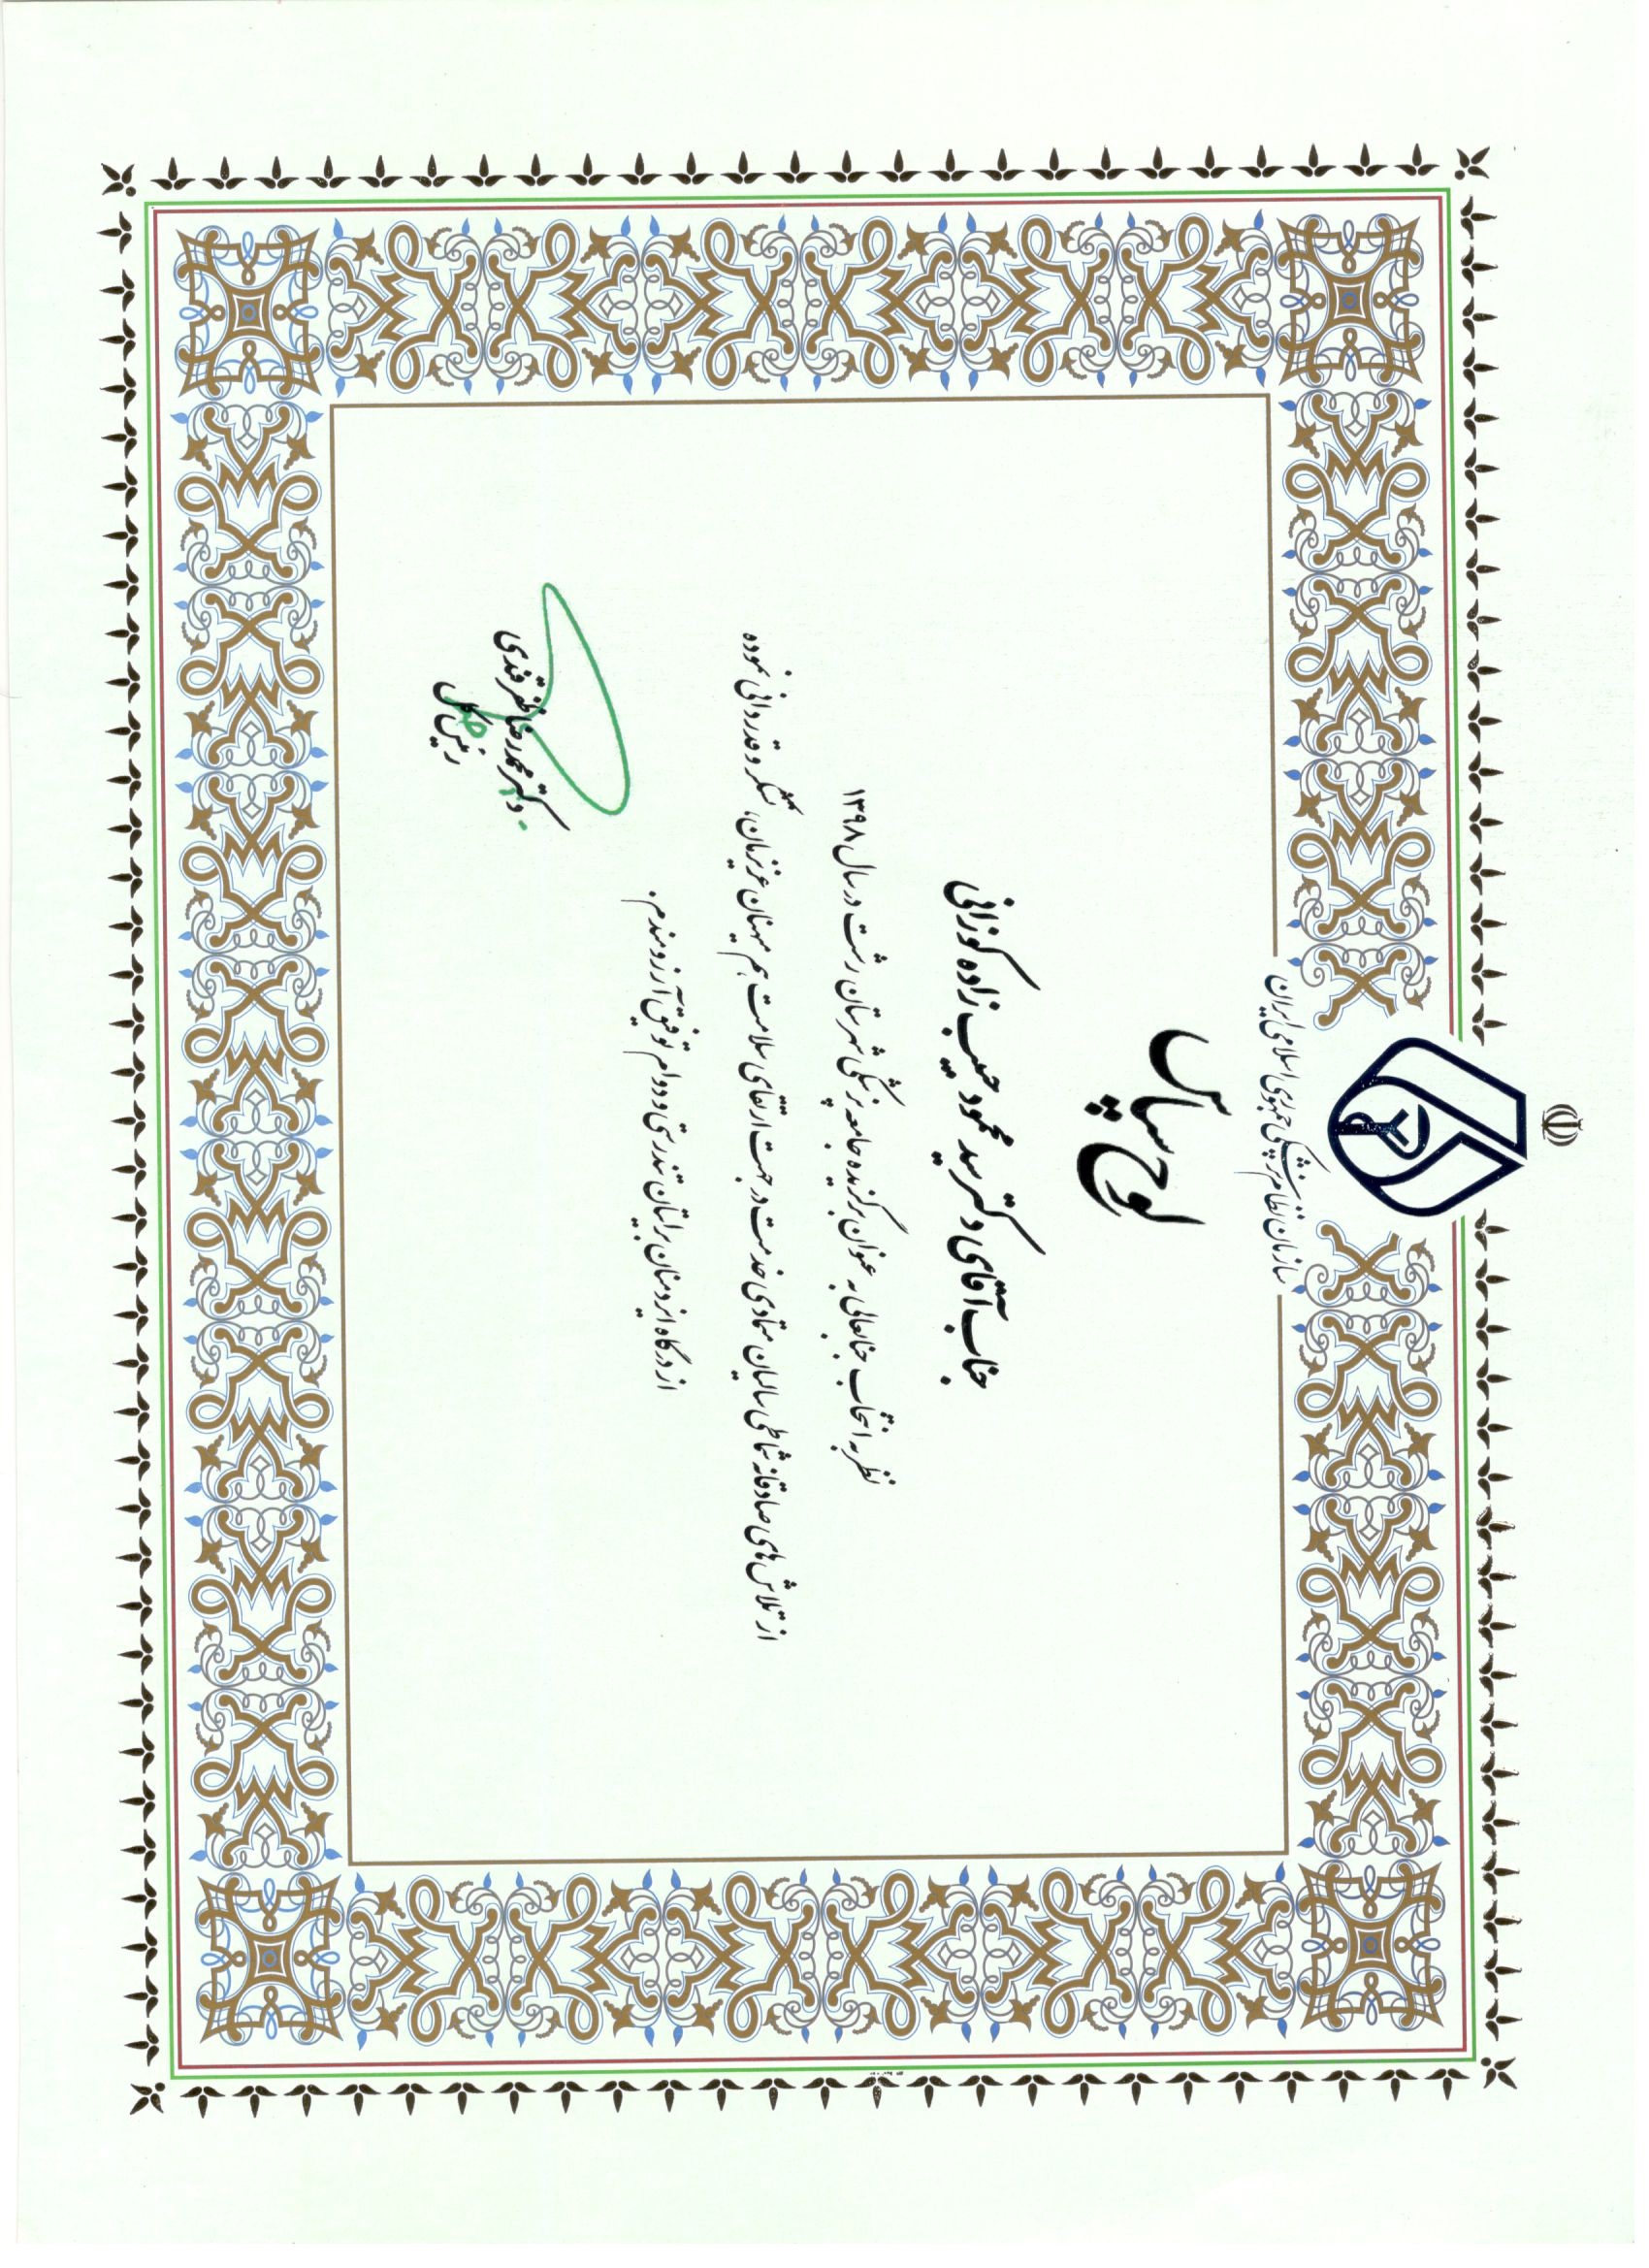 سازمان نظام پزشکی جمهوری اسلامی ایران
لوح سپاس
جناب آقای دکتر سید محمود حبیب زاده کوزانی
نظر به انتخاب جنابعالی به عنوان برگزیده جامعه پزشکی شهرستان رشت در سال ۱۳۹۸
از تلاش های صادقانه شما طی سالیان متمادی خدمت در جهت ارتقای سلامت هم میهنان عزیزمان، تشکر و قدردانی نموده
از درگاه ایزد منان برایتان تندرستی و دوام توفیق آرزومندم.
دکتر محمدرضا ظفرقندی
رئیس کل